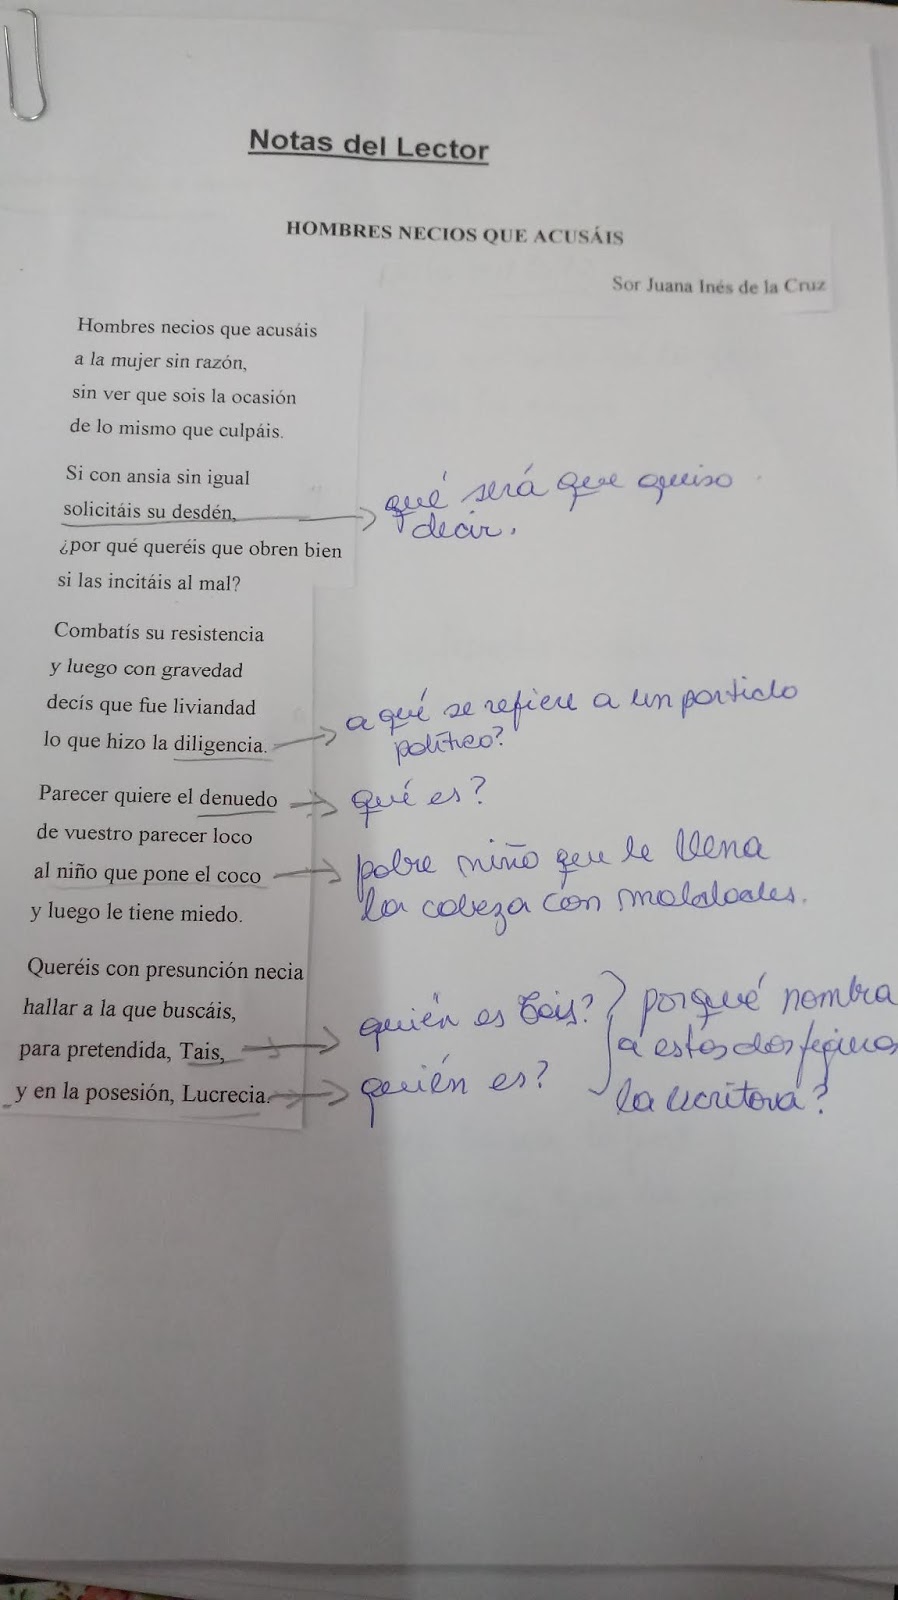 Notas del Lector
HOMBRES NECIOS QUE ACUSÁIS
Sor Juana Inés de la Cruz
Hombres necios que acusáis
a la mujer sin razón,
sin ver que sois la ocasión
de lo mismo que culpáis.
Si con ansia sin igual
solicitáis su desdén,
qué será que quiso
decir.
¿por qué queréis que obren bien
si las incitáis al mal?
Combatís su resistencia
y luego con gravedad
decís que fue liviandad
lo que hizo la diligencia.
a qué se refiere a un partido
político?
Parecer quiere el denuedo
qué es?
de vuestro parecer loco
al niño que pone el coco
pobre niño que le llena
la cabeza con maldades.
y luego le tiene miedo.
Queréis con presunción necia
hallar a la que buscáis,
para pretendida, Tais,
quién es Tais?
y en la posesión, Lucrecia.
quién es?
porqué nombra
a estas dos figuras
la escritora?